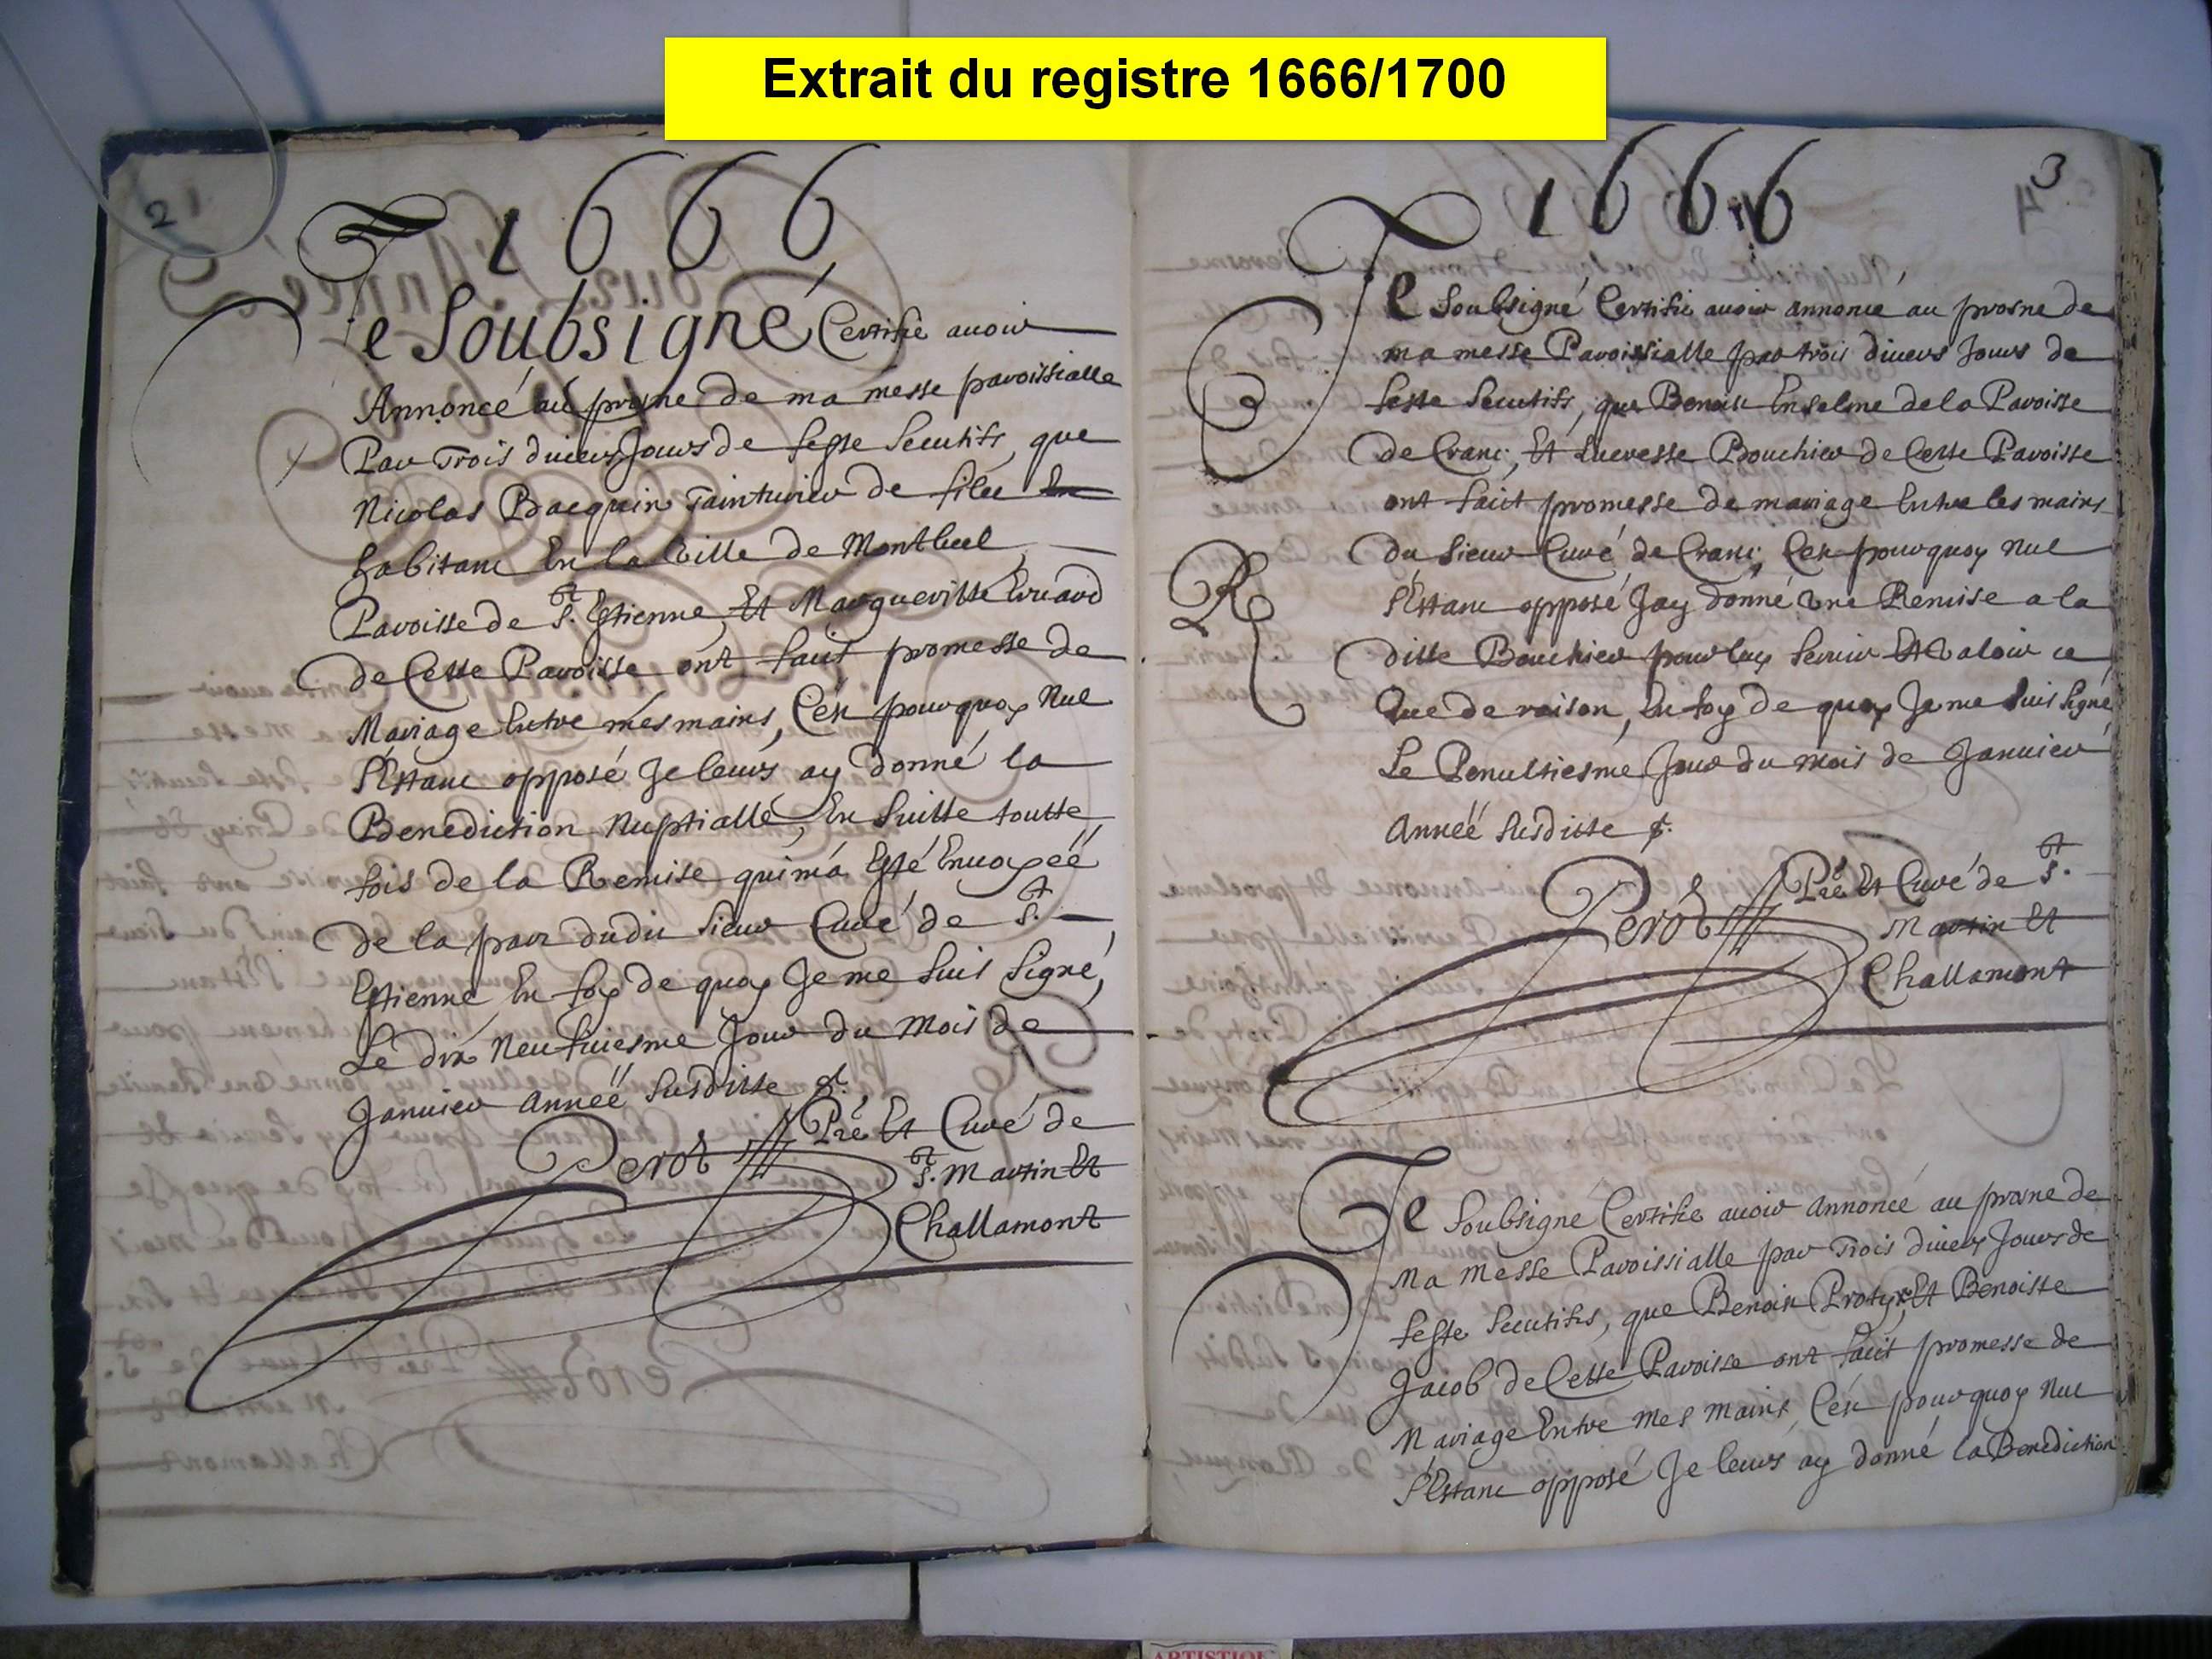 Extrait du registre 1666/1700
2
1666
Je Soubsigné Certifie auoir
Annoncé au prosne de ma messe paroissialle
Par Trois diuers Jours de feste secutifs, que
Nicolas Bacquin Tainturier de fileé
habitant En la Ville de Montluel,
Paroisse de St. Estienne, Et Margueritte
de Cette Paroisse ont faict promesse de
Mariage Entre mes mains, C'est pourquoy Nul
s'Estant opposé Je leurs ay donné la
Benediction Nuptialle, En suitte toutte
fois de la Remise qui m'a Esté Enuoyeé
de la part dudit sieur Curé de St.
Estienne En foy de quoy Je me suis signé,
Le dix Neufuiesme Jour du mois de
Januier Anneé susditte
Perot Pre Et Curé de
St. Martin Et
Challamont
3
1666
Je Soubsigné Certifie auoir annoncé au prosne de
ma messe Paroissialle par trois diuers Jours de
feste secutifs, que Benoist Enselme de la Paroisse
de Crans, Et Lucresse Bouchier de Cette Paroisse
ont faict promesse de mariage Entre les mains
du sieur Curé de Crans, C'est pourquoy Nul
s'Estant opposé J'ay donné Vne Remise a la
ditte Bouchier pour luy seruir Et Valoir ce
Que de raison, En foy de quoy Je me suis signé
Le Penultiesme Jour du mois de Januier
Anneé susditte
R
Perot Pre Et Curé de St.
Martin Et
Challamont
Je Soubsigné Certifie auoir annoncé au prosne de
Ma Messe Paroissialle par Trois diuers Jours de
feste secutifs, que Benoist Et Benoiste
Jacob de Cette Paroisse ont faict promesse de
Mariage Entre Mes mains, C'est pourquoy Nul
s'Estant opposé Je leurs ay donné la Benediction
ARTISTIQUE